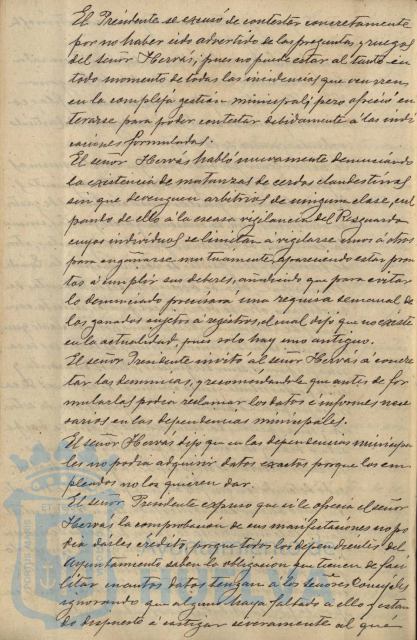 El Presidente se excusó de contestar concretamente
por no haber sido advertido de las preguntas y ruegos
del señor Hervás, pues no puede estar al tanto en
todo momento de todas las incidencias que ocurren
en la compleja gestión municipal; pero ofreció en
terarse para poder contestar debidamente á las indi
caciones formuladas.
El señor Hervás habló nuevamente denunciando
la existencia de matanzas de cerdos clandestinas
sin que devenguen arbitrios de ninguna clase, cul
pando de ello á la escasa vigilancia del Resguardo
cuyos individuos se limitan a vigilarse unos á otros
para engañarse mutuamente, apareciendo estar pron
tos á cumplir sus deberes, añadiendo que para evitar
lo denunciado precisara una requisa semanal de
los ganados sujetos á registros, el cual dijo que no existe
en la actualidad, pues solo hay uno antiguo.
El señor Presidente invitó al señor Hervás á concre
tar las denuncias, y recomendándole que antes de for
mularlas podia reclamar los datos é informes nece
sarios en las dependencias municipales.
El señor Hervás dijo que en las dependencias municipa
les no podia adquirir datos exactos porque los em
pleados no los quieren dar.
El señor Presidente expuso que si le ofrecia el señor
Hervás la comprobacion de sus manifestaciones no po
dia darles crédito, porque todos los dependientes del
Ayuntamiento saben la obligacion que tienen de faci
litar cuantos datos tengan á los señores Concejales
ignorando que alguno haya faltado á ello y estan
do dispuesto á castigar severamente al que